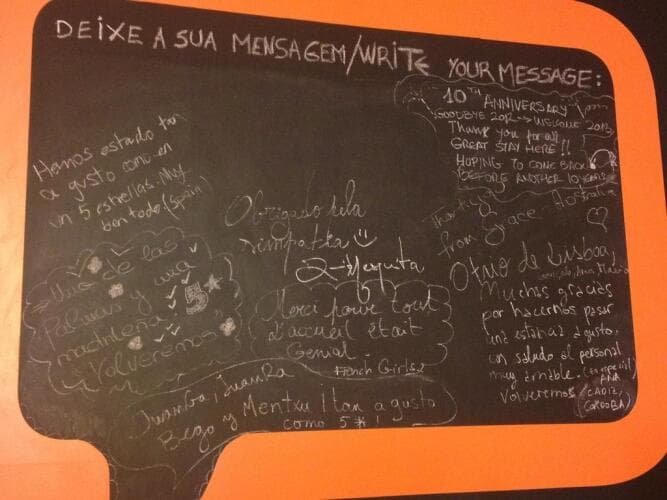 DEIXE A SUA MENSAGEM/WRITE YOUR MESSAGE:
10TH ANNIVERSARY
GOODBYE 2012 → WELCOME 2013
Thank you for all
GREAT STAY HERE!!
HOPING TO COME BACK
BEFORE ANOTHER 10 YEARS
Hemos estado tan
a gusto como en
un 5 estrellas. Muy
bien todo (Spain)
Obrigado pela
simpatia
Mesquita
Thank you
from Grace - Australia
Uno de las
Palmas y una
madrileña 5*
Volveremos
Merci pour tout
d'accueil était
Génial.
French Girls 2
Otxo de Lisboa,
Muchas gracias
por hacernos pasar
una estancia agusto.
un saludo al personal
muy amable. (en especial)
ANA
Volveremos
(CADIZ,
CORDOBA)
Juanba, JuanRa
Bego y Mentxu ! tan a gusto
como 5* !